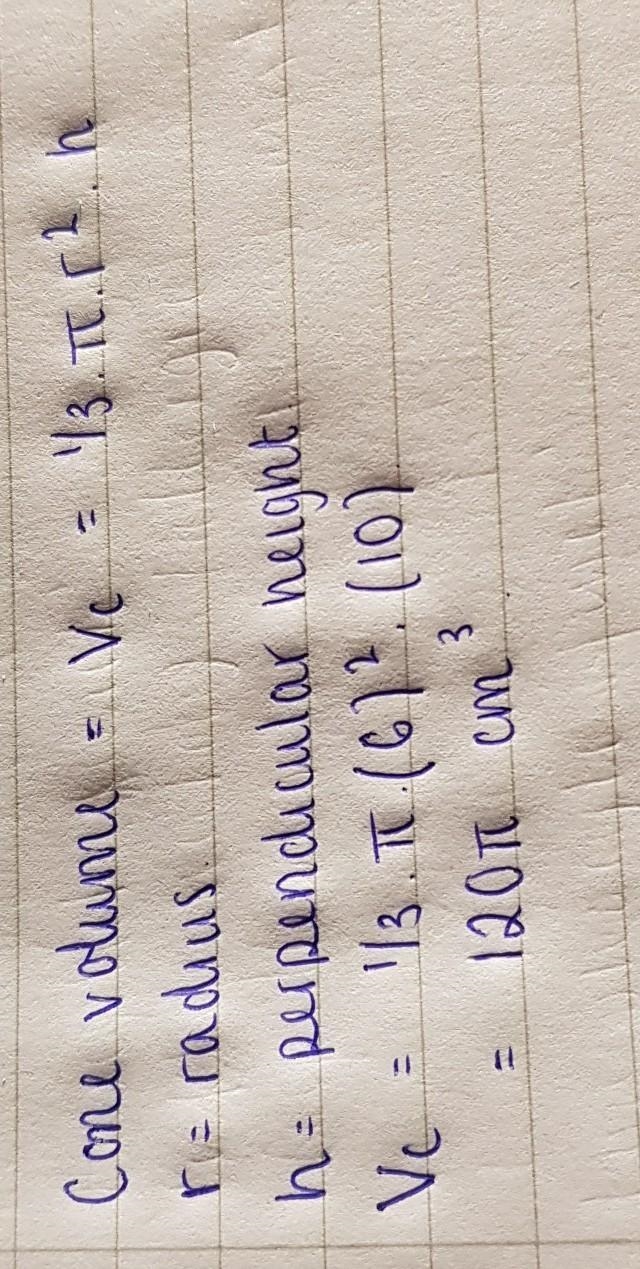 Cone volume = Vc = 1/3 . π . r² . h
r = radius.
h = perpendicular height
Vc = 1/3 . π . (6)² . (10)
= 120π cm³